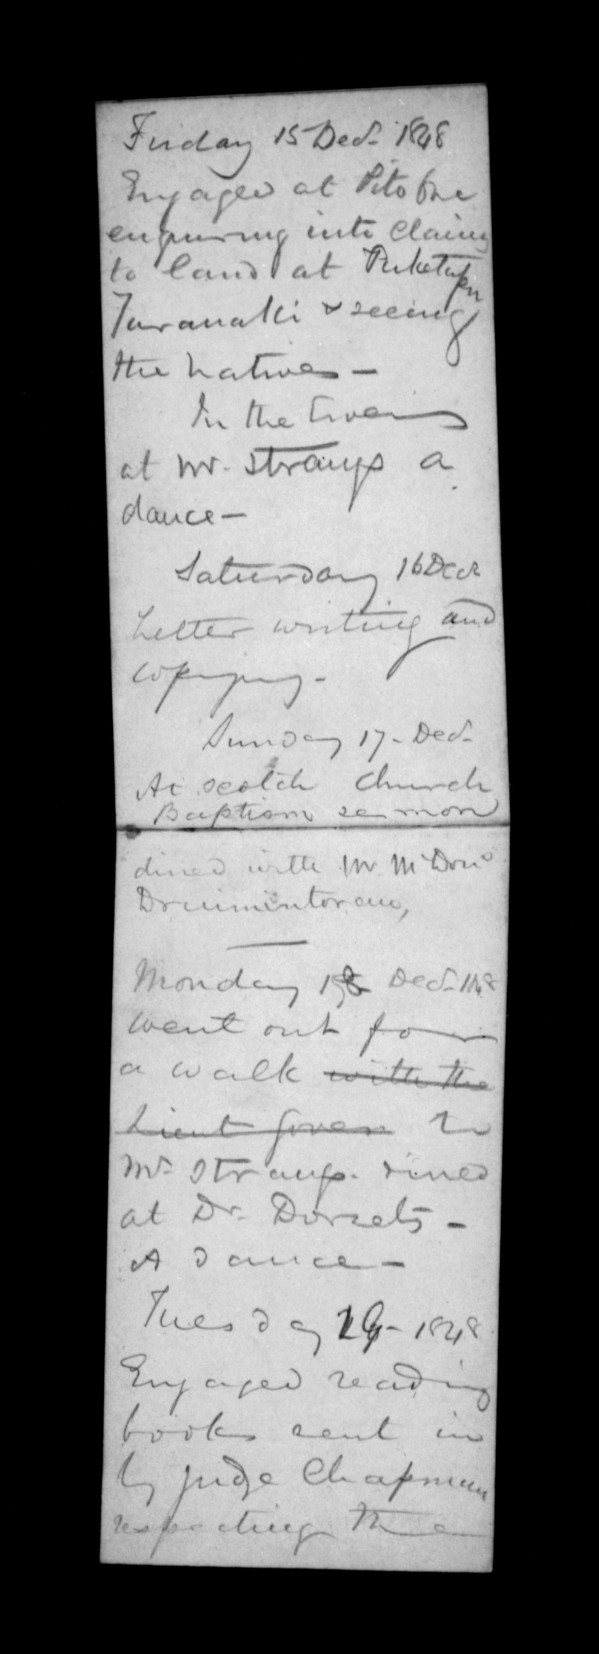 Friday 15 Decr 1848
Engaged at Pitone
enquiring into claims
to land at Puketapu
Taranaki & seeing
the natives -
In the Evening
at Mr. Strangs a
dance -
Saturday 16 Decr
Letter writing and
copying -
Sunday 17 - Decr
At scotch Church
Baptism sermon
dined with Mr McDon
Monday 18 Decr 1848
went out for
a walk with the
Lieut Gover to
Mr Strangs. dined
at Dr. Dorsets -
A dance -
Tuesday 19 - 1848
Engaged reading
books sent in
by Judge Chapman
respecting the